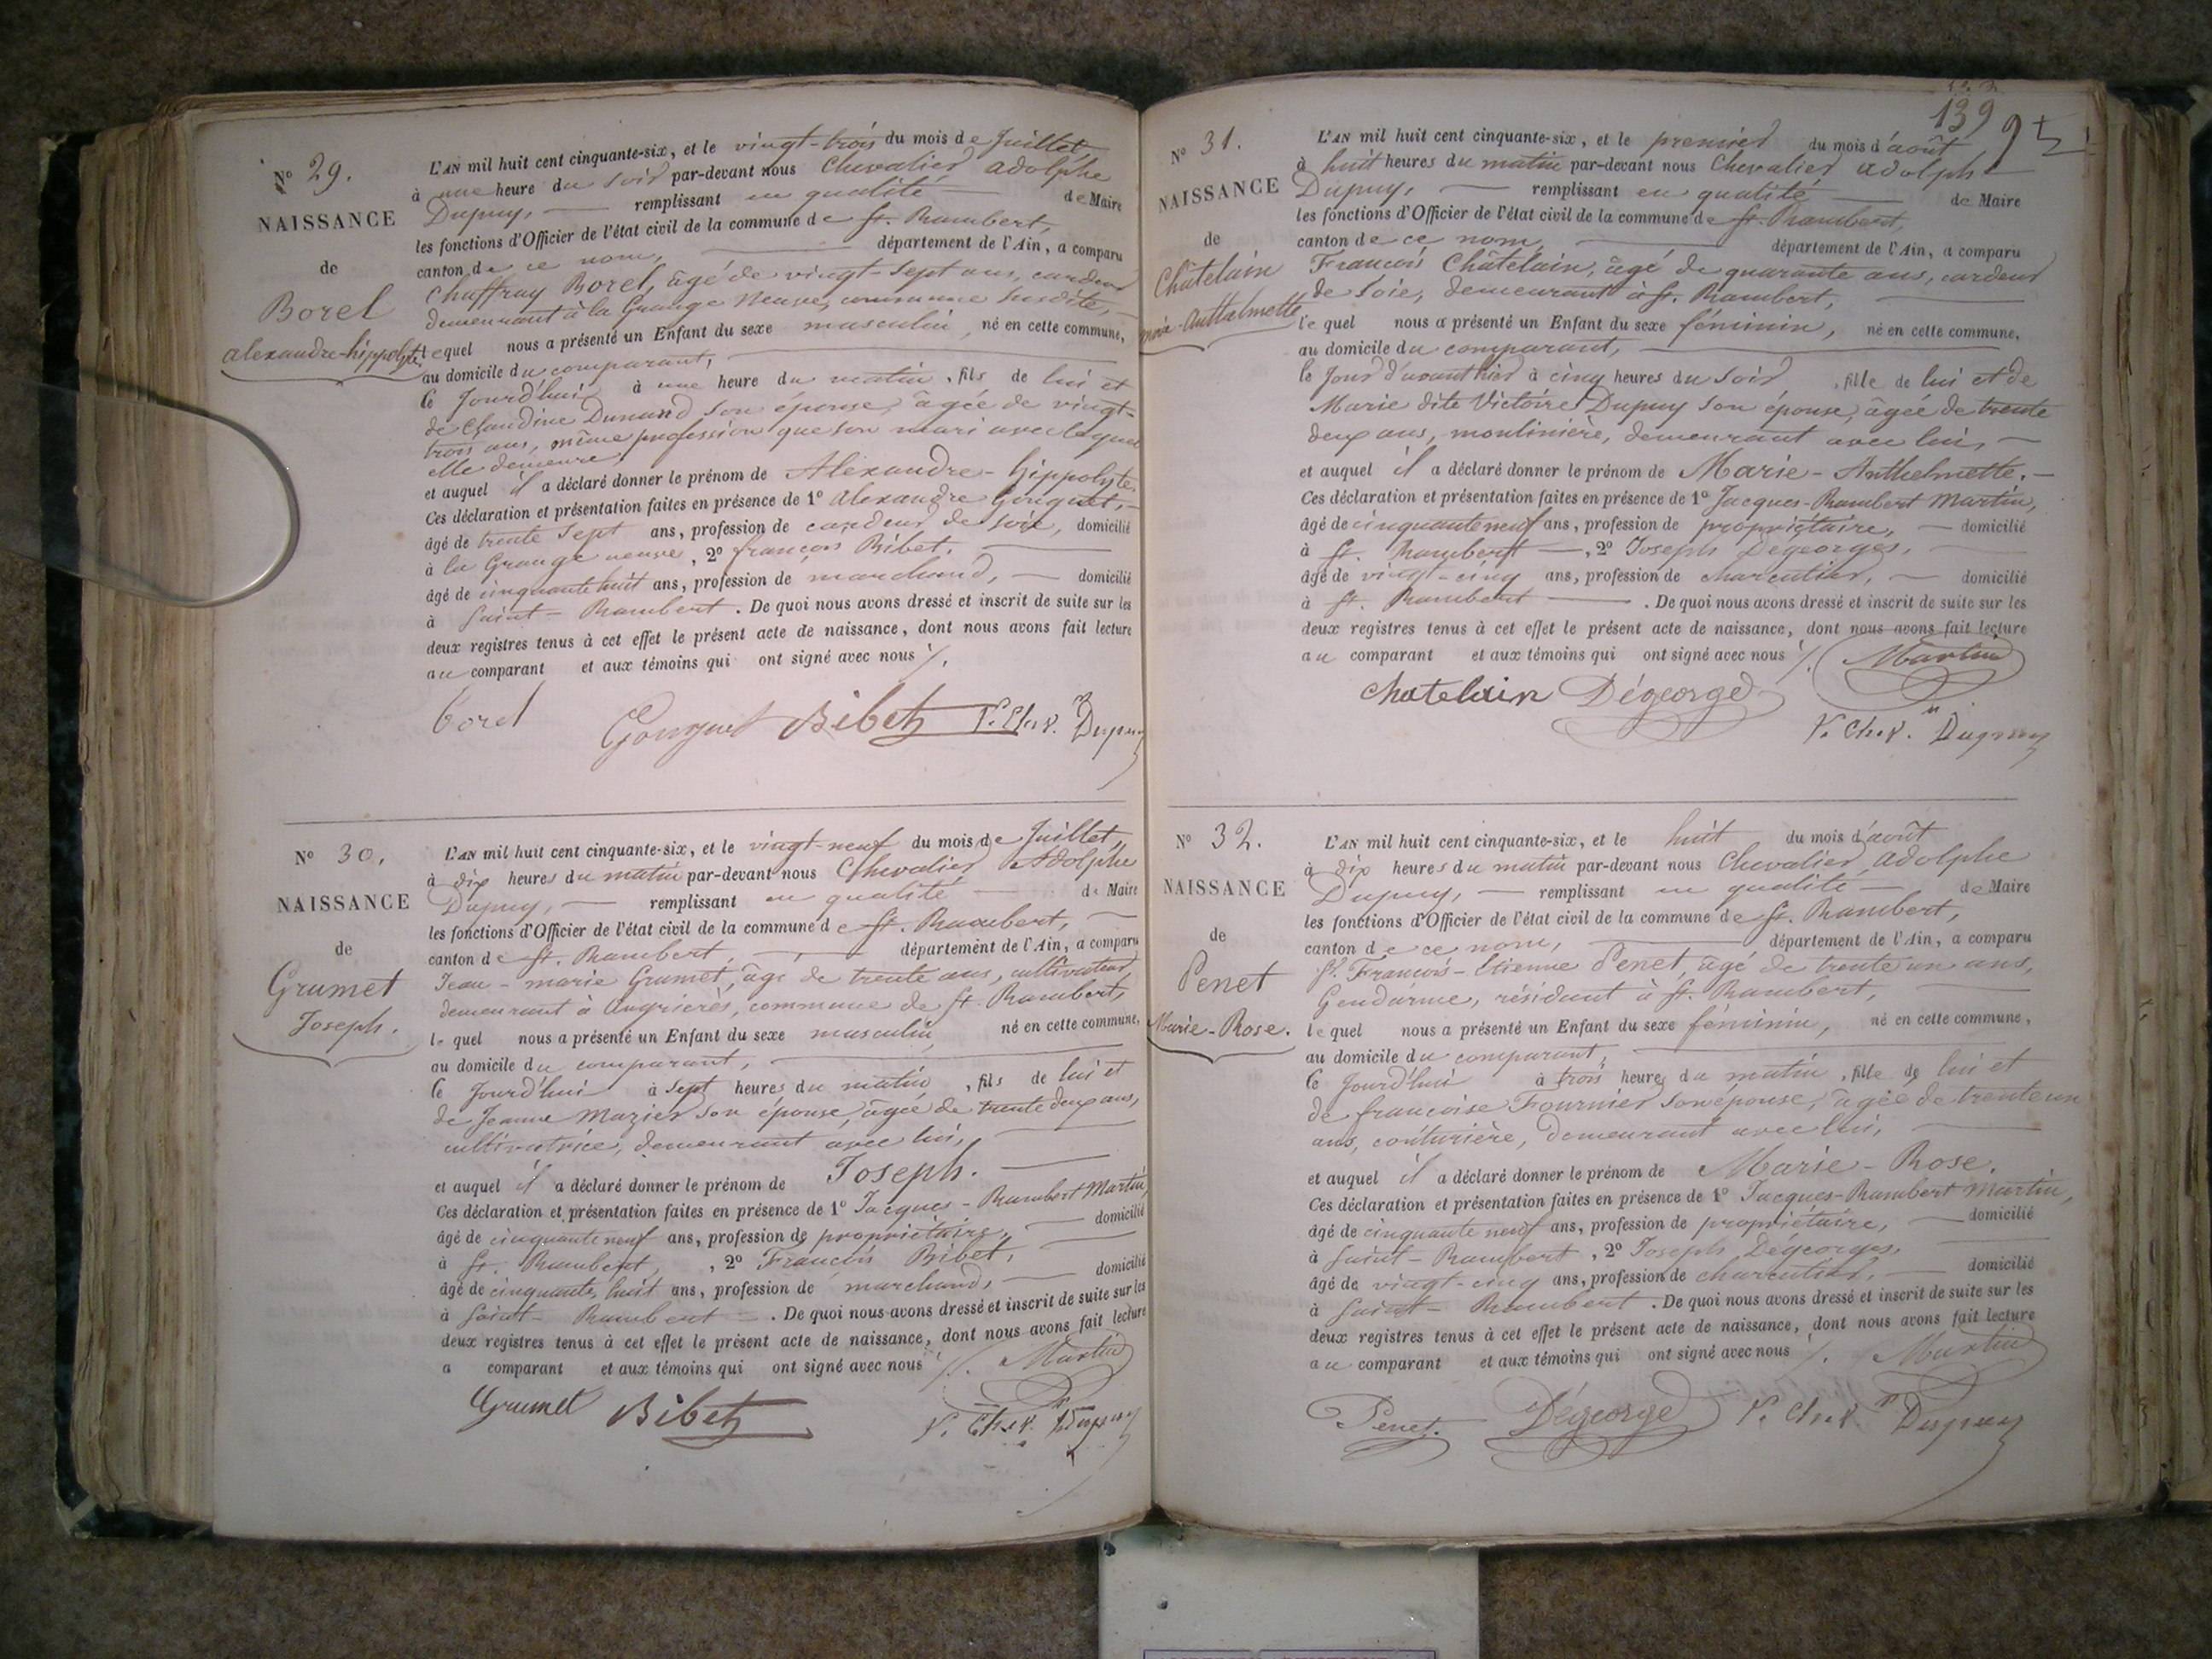 N° 29.
NAISSANCE
de
Borel
alexandre-hippolyte
L'AN mil huit cent cinquante-six, et le vingt-trois du mois de Juillet,
à une heure du soir par-devant nous Chevalier adolphe
Dupuy, remplissant en qualité de Maire
les fonctions d'Officier de l'état civil de la commune de St. Rambert,
canton de ce nom, département de l'Ain, a comparu
Chaffray Borel, âgé de vingt-sept ans, cardeur
demeurant à la Grange Neuve, commune susdite,
lequel nous a présenté un Enfant du sexe masculin, né en cette commune,
au domicile du comparant,
ce jourd'hui à une heure du matin, fils de lui et
de Claudine Dunand son épouse, âgée de vingt-
trois ans, même profession que son mari avec lequel
elle demeure,
et auquel il a déclaré donner le prénom de Alexandre-hippolyte.
Ces déclaration et présentation faites en présence de 1° alexandre Gouguet,
âgé de trente sept ans, profession de cardeur de soie, domicilié
à la Grange neuve, 2° françois Bibet,
âgé de cinquante huit ans, profession de marchand, domicilié
à Saint-Rambert. De quoi nous avons dressé et inscrit de suite sur les
deux registres tenus à cet effet le présent acte de naissance, dont nous avons fait lecture
au comparant et aux témoins qui ont signé avec nous ./.
borel Gouguet Bibet Dupuy
N° 30.
NAISSANCE
de
Grumet
Joseph.
L'AN mil huit cent cinquante-six, et le vingt-neuf du mois de Juillet,
à dix heures du matin par-devant nous Chevalier Adolphe
Dupuy, remplissant en qualité de Maire
les fonctions d'Officier de l'état civil de la commune de St. Rambert,
canton de St. Rambert, département de l'Ain, a comparu
Jean-marie Grumet, âgé de trente ans, cultivateur,
demeurant à Angrières, commune de St. Rambert,
lequel nous a présenté un Enfant du sexe masculin, né en cette commune,
au domicile du comparant,
ce jourd'hui à sept heures du matin, fils de lui et
de Jeanne Mazier son épouse, âgée de trente deux ans,
cultivatrice, demeurant avec lui,
et auquel il a déclaré donner le prénom de Joseph.
Ces déclaration et présentation faites en présence de 1° Jacques-Rambert Martin,
âgé de cinquante neuf ans, profession de propriétaire, domicilié
à St. Rambert, 2° François Bibet,
âgé de cinquante huit ans, profession de marchand, domicilié
à Saint-Rambert. De quoi nous avons dressé et inscrit de suite sur les
deux registres tenus à cet effet le présent acte de naissance, dont nous avons fait lecture
a comparant et aux témoins qui ont signé avec nous ./. Martin
Grumet Bibet Dupuy
139
N° 31.
NAISSANCE
de
Châtelain
L'AN mil huit cent cinquante-six, et le premier du mois d'août
à huit heures du matin par-devant nous Chevalier adolphe
Dupuy, remplissant en qualité de Maire
les fonctions d'Officier de l'état civil de la commune de St. Rambert,
canton de ce nom, département de l'Ain, a comparu
François Châtelain, âgé de quarante ans, cardeur
de soie, demeurant à St. Rambert,
lequel nous a présenté un Enfant du sexe féminin, né en cette commune,
au domicile du comparant,
le jour d'avant hier à cinq heures du soir, fille de lui et de
Marie dite Victoire Dupuy son épouse, âgée de trente
deux ans, moulinière, demeurant avec lui,
et auquel il a déclaré donner le prénom de Marie-Anthelmette.
Ces déclaration et présentation faites en présence de 1° Jacques-Rambert Martin,
âgé de cinquante neuf ans, profession de propriétaire, domicilié
à St. Rambert, 2° Joseph Dégeorges,
âgé de vingt-cinq ans, profession de charcutier, domicilié
à St. Rambert. De quoi nous avons dressé et inscrit de suite sur les
deux registres tenus à cet effet le présent acte de naissance, dont nous avons fait lecture
au comparant et aux témoins qui ont signé avec nous ./. Martin
Chatelain Dégeorge
Dupuy
N° 32.
NAISSANCE
de
Penet
Marie-Rose.
L'AN mil huit cent cinquante-six, et le huit du mois d'août
à dix heures du matin par-devant nous Chevalier adolphe
Dupuy, remplissant en qualité de Maire
les fonctions d'Officier de l'état civil de la commune de St. Rambert,
canton de ce nom, département de l'Ain, a comparu
François-Etienne Penet, âgé de trente un ans,
Gendarme, résidant à St. Rambert,
lequel nous a présenté un Enfant du sexe féminin, né en cette commune,
au domicile du comparant,
ce jourd'hui à trois heures du matin, fille de lui et
de françoise Fournier son épouse, âgée de trente un
ans, couturière, demeurant avec lui,
et auquel il a déclaré donner le prénom de Marie-Rose.
Ces déclaration et présentation faites en présence de 1° Jacques-Rambert Martin,
âgé de cinquante neuf ans, profession de propriétaire, domicilié
à Saint-Rambert, 2° Joseph Dégeorges,
âgé de vingt-cinq ans, profession de charcutier, domicilié
à Saint-Rambert. De quoi nous avons dressé et inscrit de suite sur les
deux registres tenus à cet effet le présent acte de naissance, dont nous avons fait lecture
au comparant et aux témoins qui ont signé avec nous ./. Martin
Penet. Dégeorge Dupuy